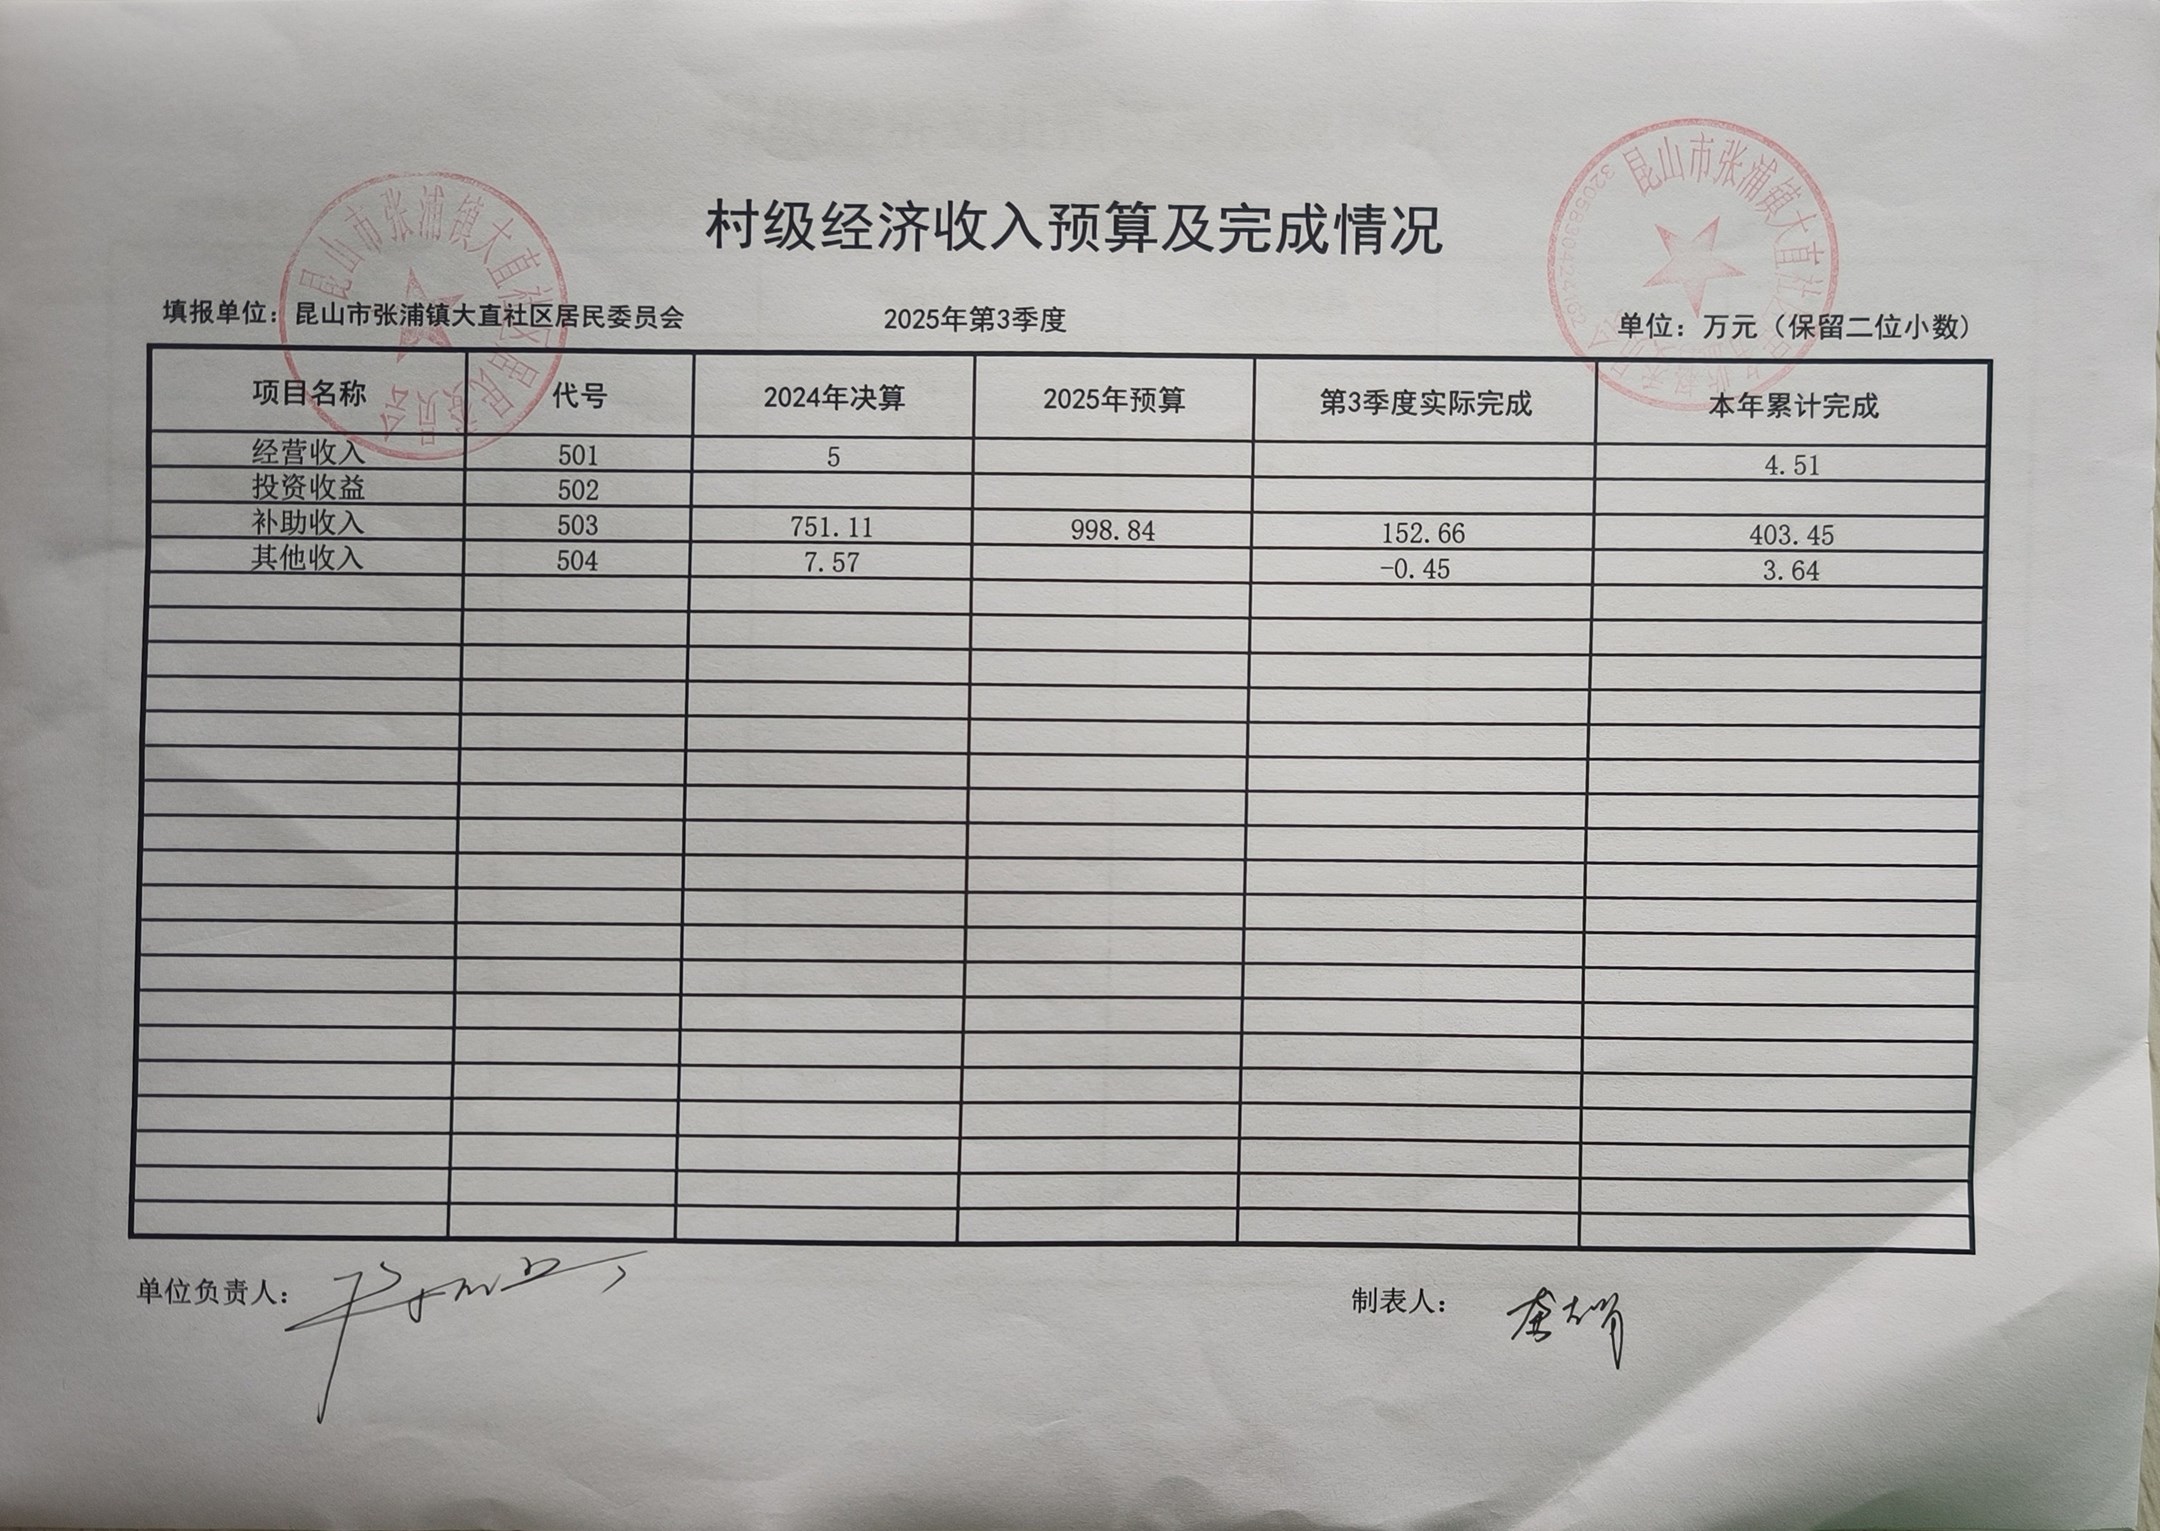 村级经济收入预算及完成情况
填报单位：昆山市张浦镇大直社区居民委员会 2025年第3季度 单位：万元（保留二位小数）
项目名称 代号 2024年决算 2025年预算 第3季度实际完成 本年累计完成
经营收入 501 5 4.51
投资收益 502
补助收入 503 751.11 998.84 152.66 403.45
其他收入 504 7.57 -0.45 3.64
单位负责人： 制表人：
昆山市张浦镇大直社区居民委员会
昆山市张浦镇大直社